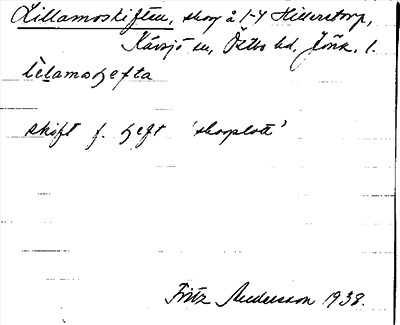 Lillamoskiften, skog å 1-4 Hillerstorp,
Kävsjö sn, Östbo hd, Jönk. l.
lelamoʒefta
skift f. ʒeft 'skogslott'
Fritz Andersson 1938.